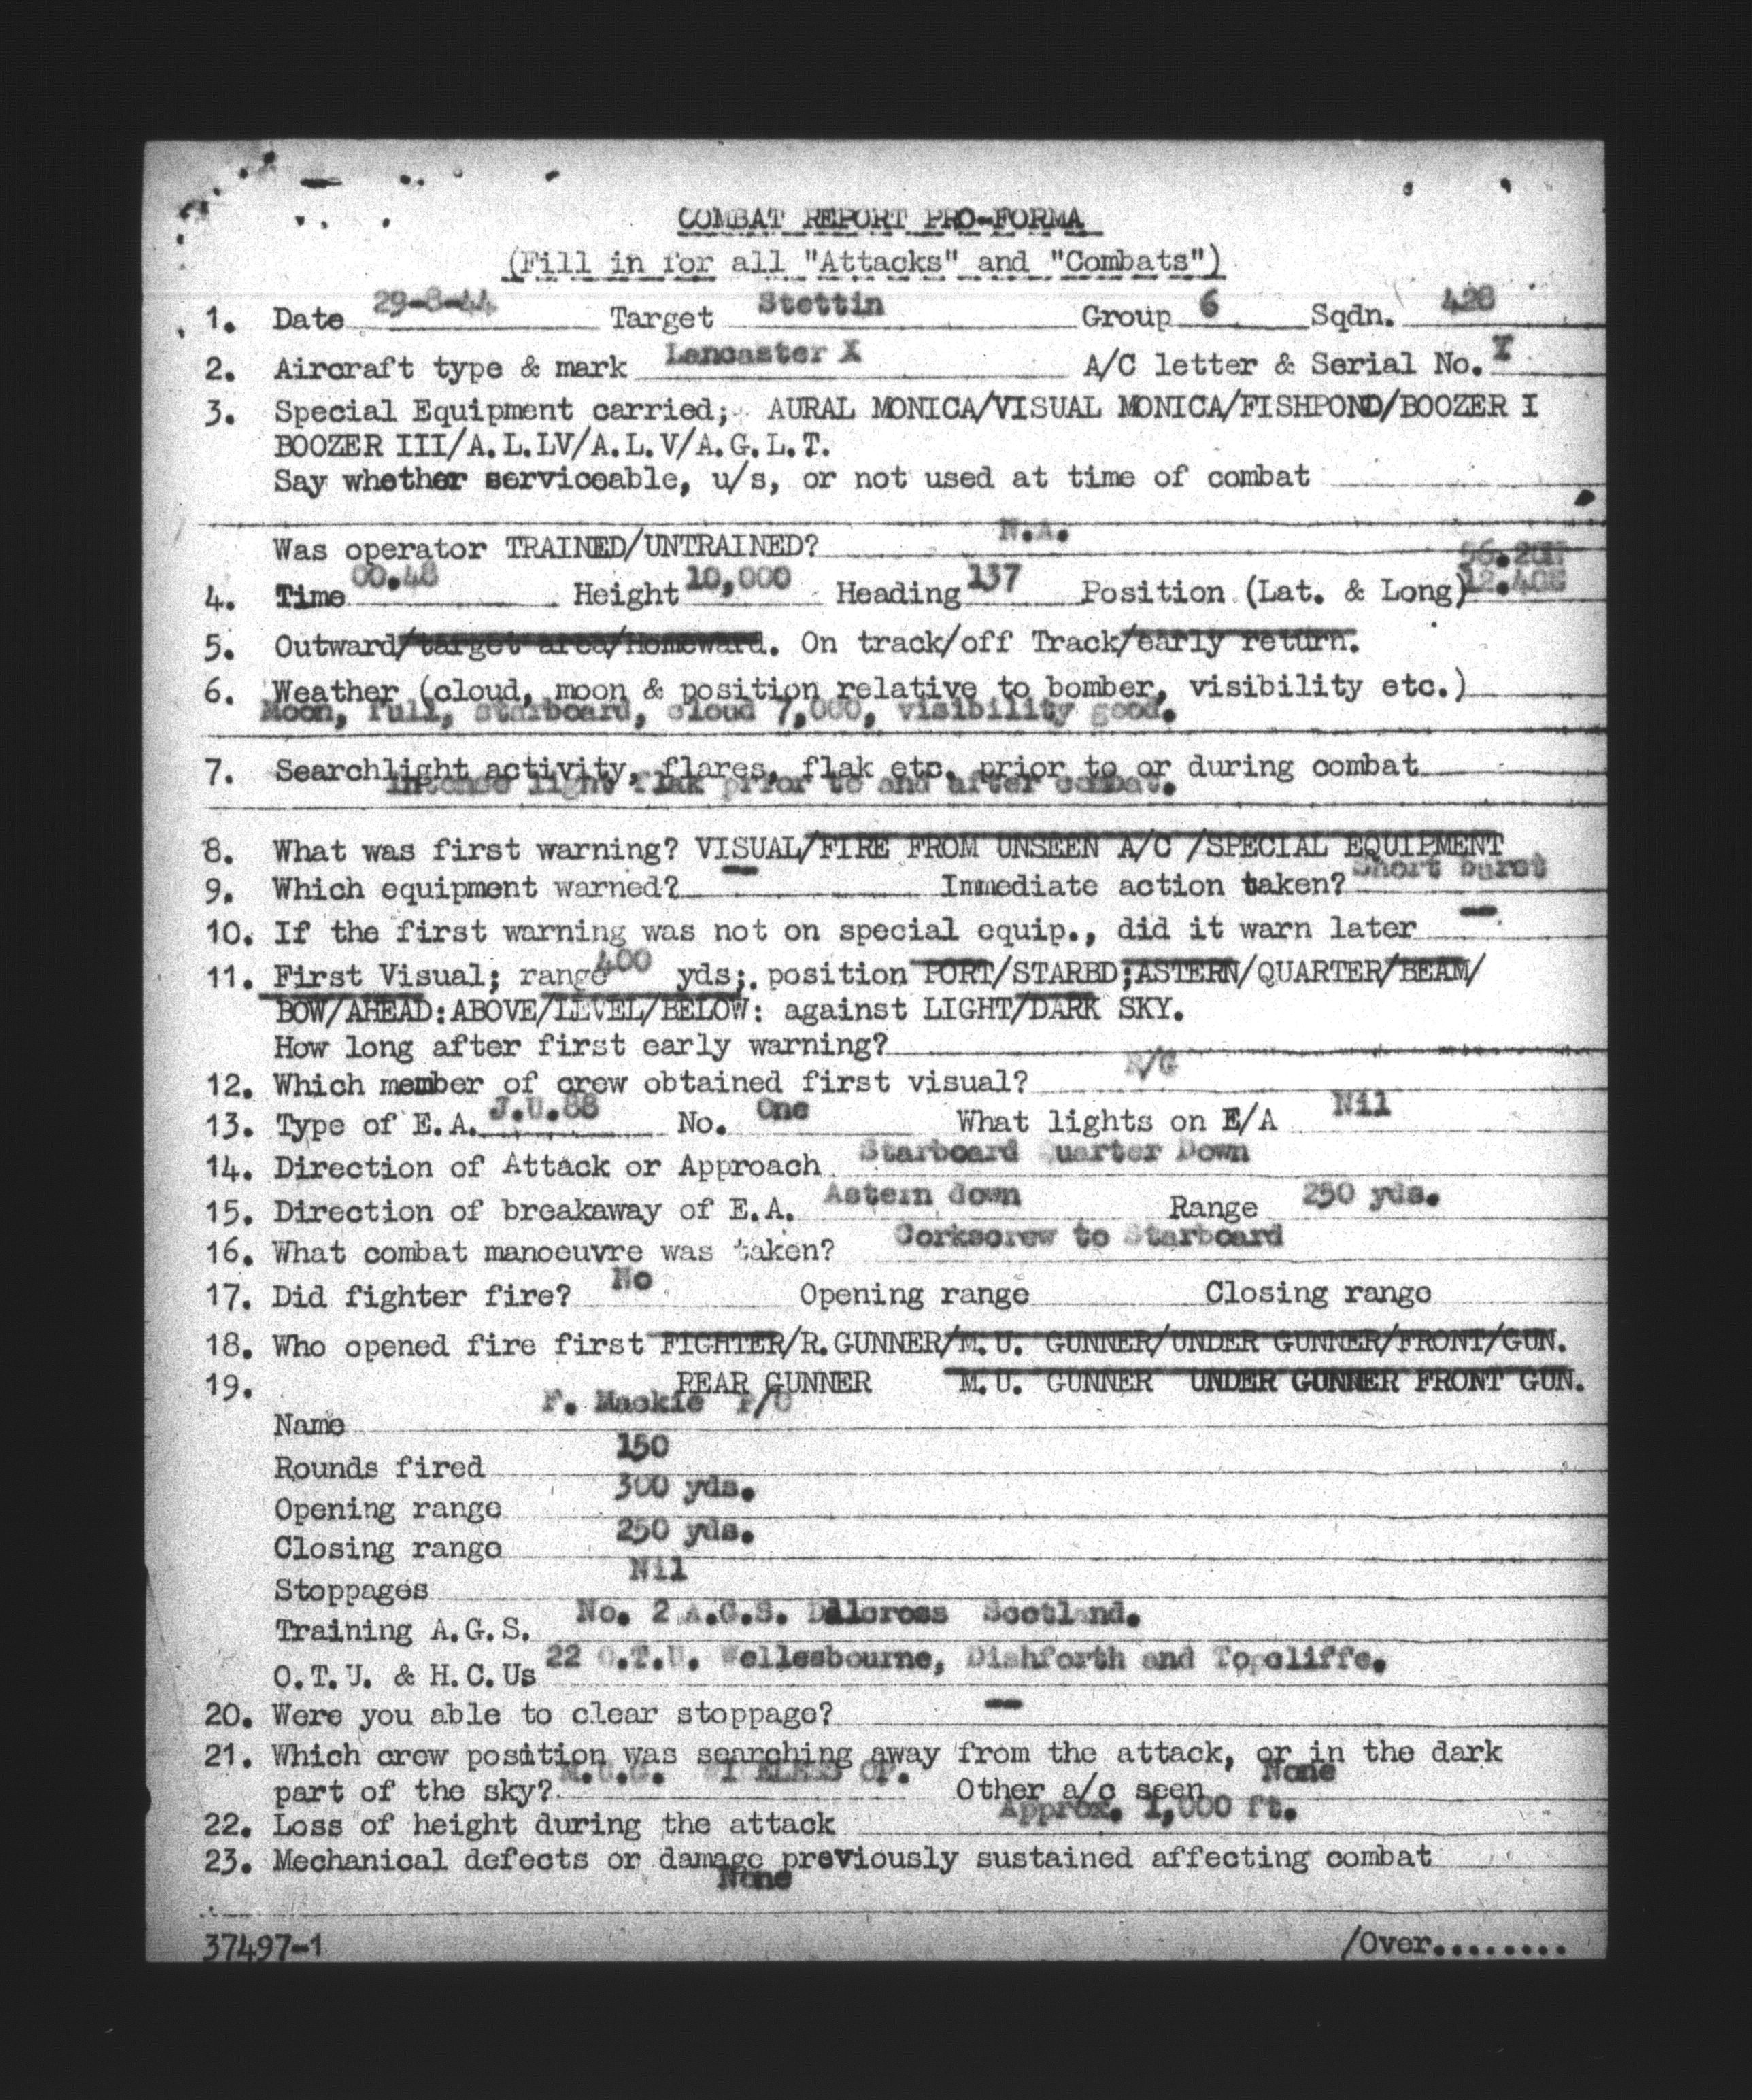 COMBAT REPORT PRO-FORMA
(Fill in for all "Attacks" and "Combats")
1. Date 29-8-44 Target Stettin Group 6 Sqdn. 428
2. Aircraft type & mark Lancaster X A/C letter & Serial No.
3. Special Equipment carried; AURAL MONICA/VISUAL MONICA/FISHPOND/BOOZER I
BOOZER III/A.L.LV/A.L.V/A.G.L.T.
Say whether serviceable, u/s, or not used at time of combat
Was operator TRAINED/UNTRAINED? N.A.
4. Time 00.48 Height 10,000 Heading 137 Position (Lat. & Long) 56.20N
12.40E
5. Outward/target area/Homeward. On track/off Track/early return.
6. Weather (cloud, moon & position relative to bomber, visibility etc.)
Moon, full, starboard, cloud 7,000, visibility good.
7. Searchlight activity, flares, flak etc. prior to or during combat
Intense light flak prior to and after combat.
8. What was first warning? VISUAL/FIRE FROM UNSEEN A/C /SPECIAL EQUIPMENT
9. Which equipment warned? — Immediate action taken? Short burst
10. If the first warning was not on special equip., did it warn later —
11. First Visual; range 400 yds; position PORT/STARBD;ASTERN/QUARTER/BEAM/
BOW/AHEAD:ABOVE/LEVEL/BELOW: against LIGHT/DARK SKY.
How long after first early warning?
12. Which member of crew obtained first visual? R/G
13. Type of E.A. J.U.88 No. One What lights on E/A Nil
14. Direction of Attack or Approach Starboard Quarter Down
15. Direction of breakaway of E.A. Astern down Range 250 yds.
16. What combat manoeuvre was taken? Corkscrew to Starboard
17. Did fighter fire? No Opening range Closing range
18. Who opened fire first FIGHTER/R.GUNNER/M.U. GUNNER/UNDER GUNNER/FRONT/GUN.
19. REAR GUNNER M.U. GUNNER UNDER GUNNER FRONT GUN.
Name F. Mackie P/O
Rounds fired 150
Opening range 300 yds.
Closing range 250 yds.
Stoppages Nil
Training A.G.S. No. 2 A.G.S. Dalcross Scotland.
O.T.U. & H.C.Us 22 O.T.U. Wellesbourne, Dishforth and Topcliffe.
20. Were you able to clear stoppage? —
21. Which crew position was searching away from the attack, or in the dark
part of the sky? M.U.G. WIRELESS OP. Other a/c seen None
22. Loss of height during the attack Approx. 1,000 ft.
23. Mechanical defects or damage previously sustained affecting combat
None
37497-1 /Over........